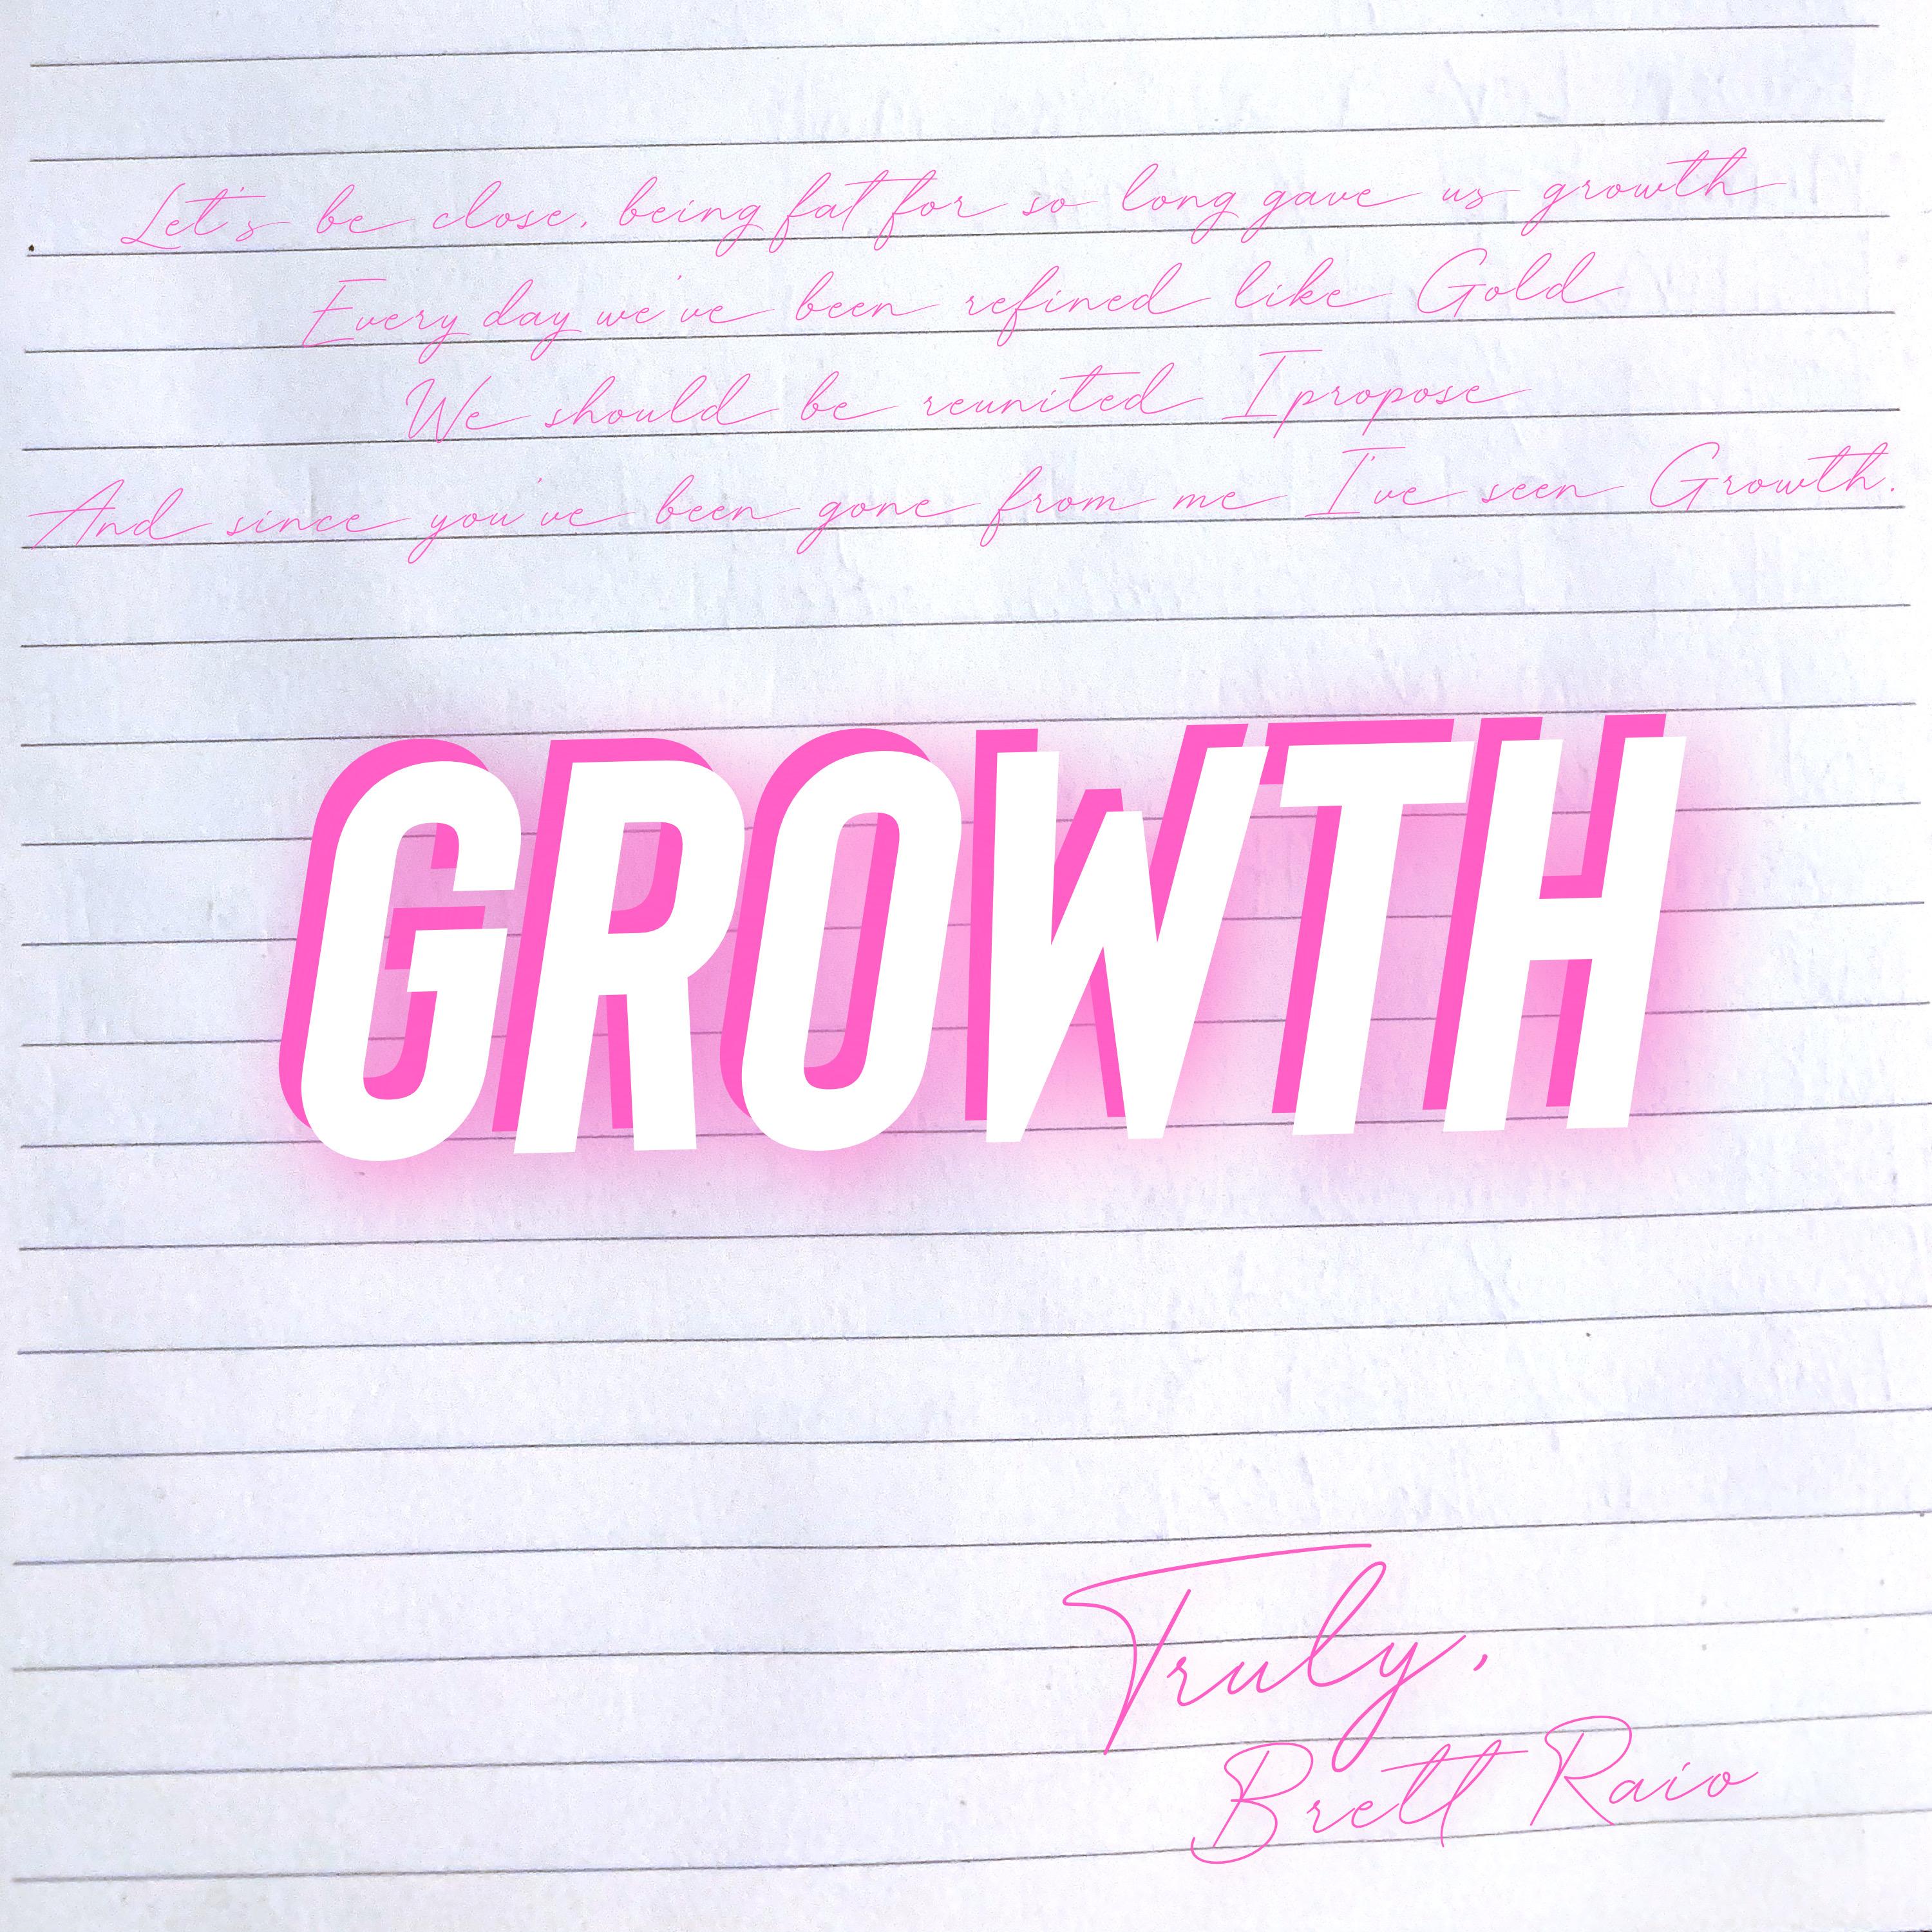 Let's be close, being fat for so long gave us growth
Every day we've been refined like Gold
We should be reunited I propose
And since you've been gone from me I've seen Growth.
GROWTH
Truly,
Brett Raio